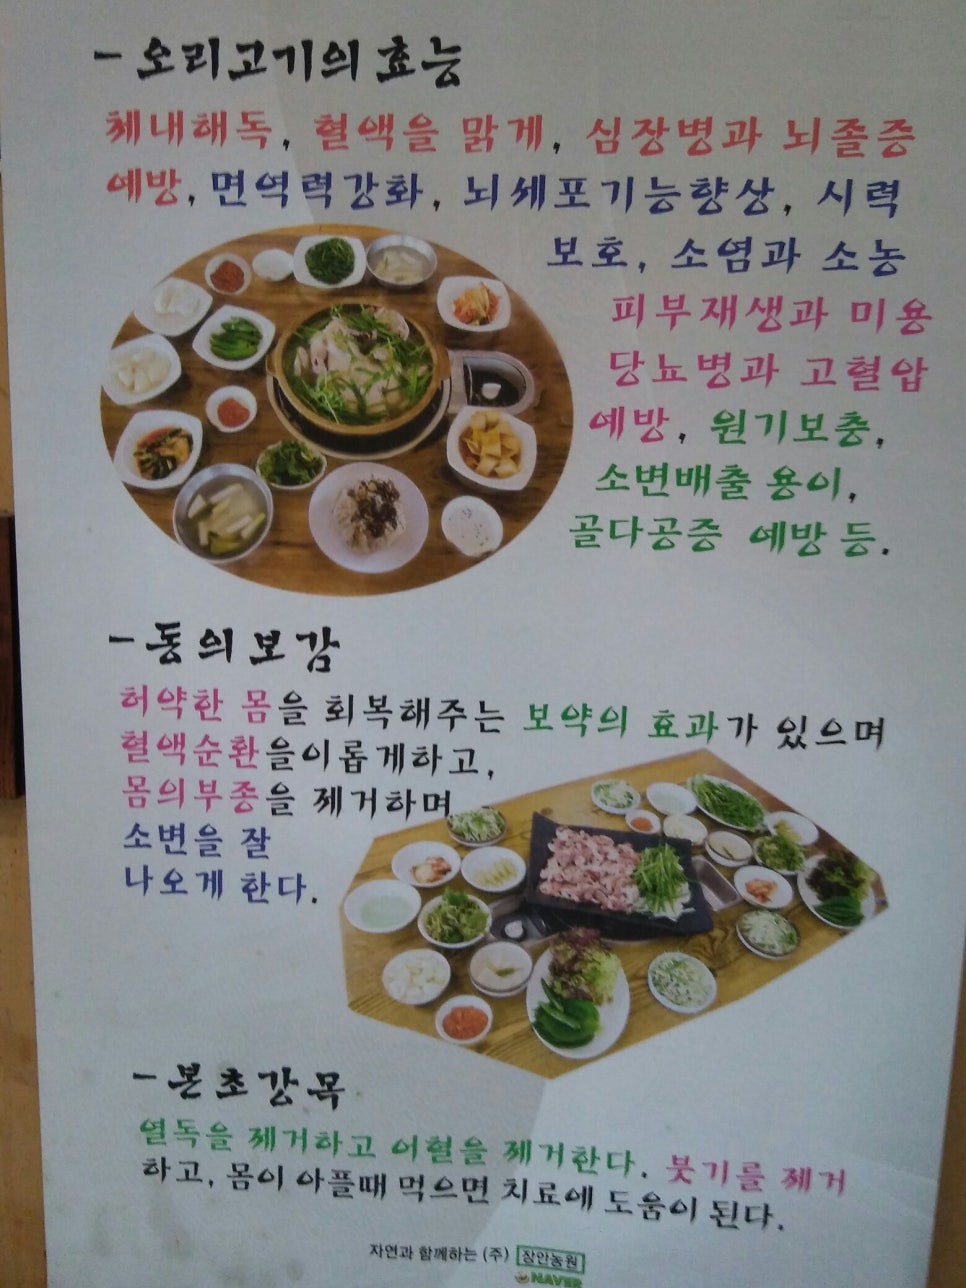 - 오리고기의 효능
체내해독, 혈액을 맑게, 심장병과 뇌졸증
예방, 면역력강화, 뇌세포기능향상, 시력
보호, 소염과 소농
피부재생과 미용
당뇨병과 고혈압
예방, 원기보충,
소변배출 용이,
골다공증 예방 등.
- 동의보감
허약한 몸을 회복해주는 보약의 효과가 있으며
혈액순환을이롭게하고,
몸의부종을 제거하며
소변을 잘
나오게 한다.
- 본초강목
열독을 제거하고 어혈을 제거한다. 붓기를 제거
하고, 몸이 아플때 먹으면 치료에 도움이 된다.
자연과 함께하는 (주) 장안농원
NAVER